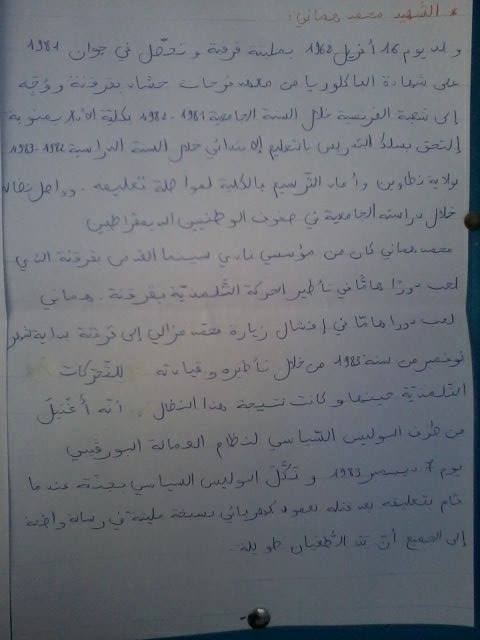 * الشهيد محمد هماني:
ولد يوم 16 أفريل 1962 بمدينة قرقنة و تحصّل في جوان 1981
على شهادة الباكالوريا من معهد فرحات حشاد بقرقنة و وُجّه
إلى شعبة الفرنسية خلال السنة الجامعية 1981-1982 بكلية الآداب بمنوبة
إلتحق بسلك التدريس بالتعليم الإبتدائي خلال السنة الدراسية 1982-1983
بولاية تطاوين و أعاد التّرسيم بالكلية لمواصلة تعليمه. وواصل نضاله
خلال دراسته الجامعية في صفوف الوطنيين الديمقراطيين
محمد هماني كان من مؤسسي نادي سينما القدس بقرقنة الذي
لعب دورًا هامًّا في تأطير الحركة التّلمذيّة بقرقنة. هماني
لعب دورا هامًّا في إفشال زيارة محمد مزالي إلى قرقنة بداية شهر
نوفمبر من سنة 1983 من خلال تأطيره و قيادته للتّحرّكات
التّلمذيّة حينها و كانت نتيجة هذا النضال، أنّه أُغتيلَ
من طرف البوليس السّياسي لنظام العمالة البورقيبي
يوم 7 ديسمبر 1983 و نكّل البوليس السياسي بجثّته عندما
قام بتعليقه بعد قتله بعمود كهربائي بسبخة مليتة في رسالة واضحة
إلى الجميع أنّ يد الطّغيان طويلة.